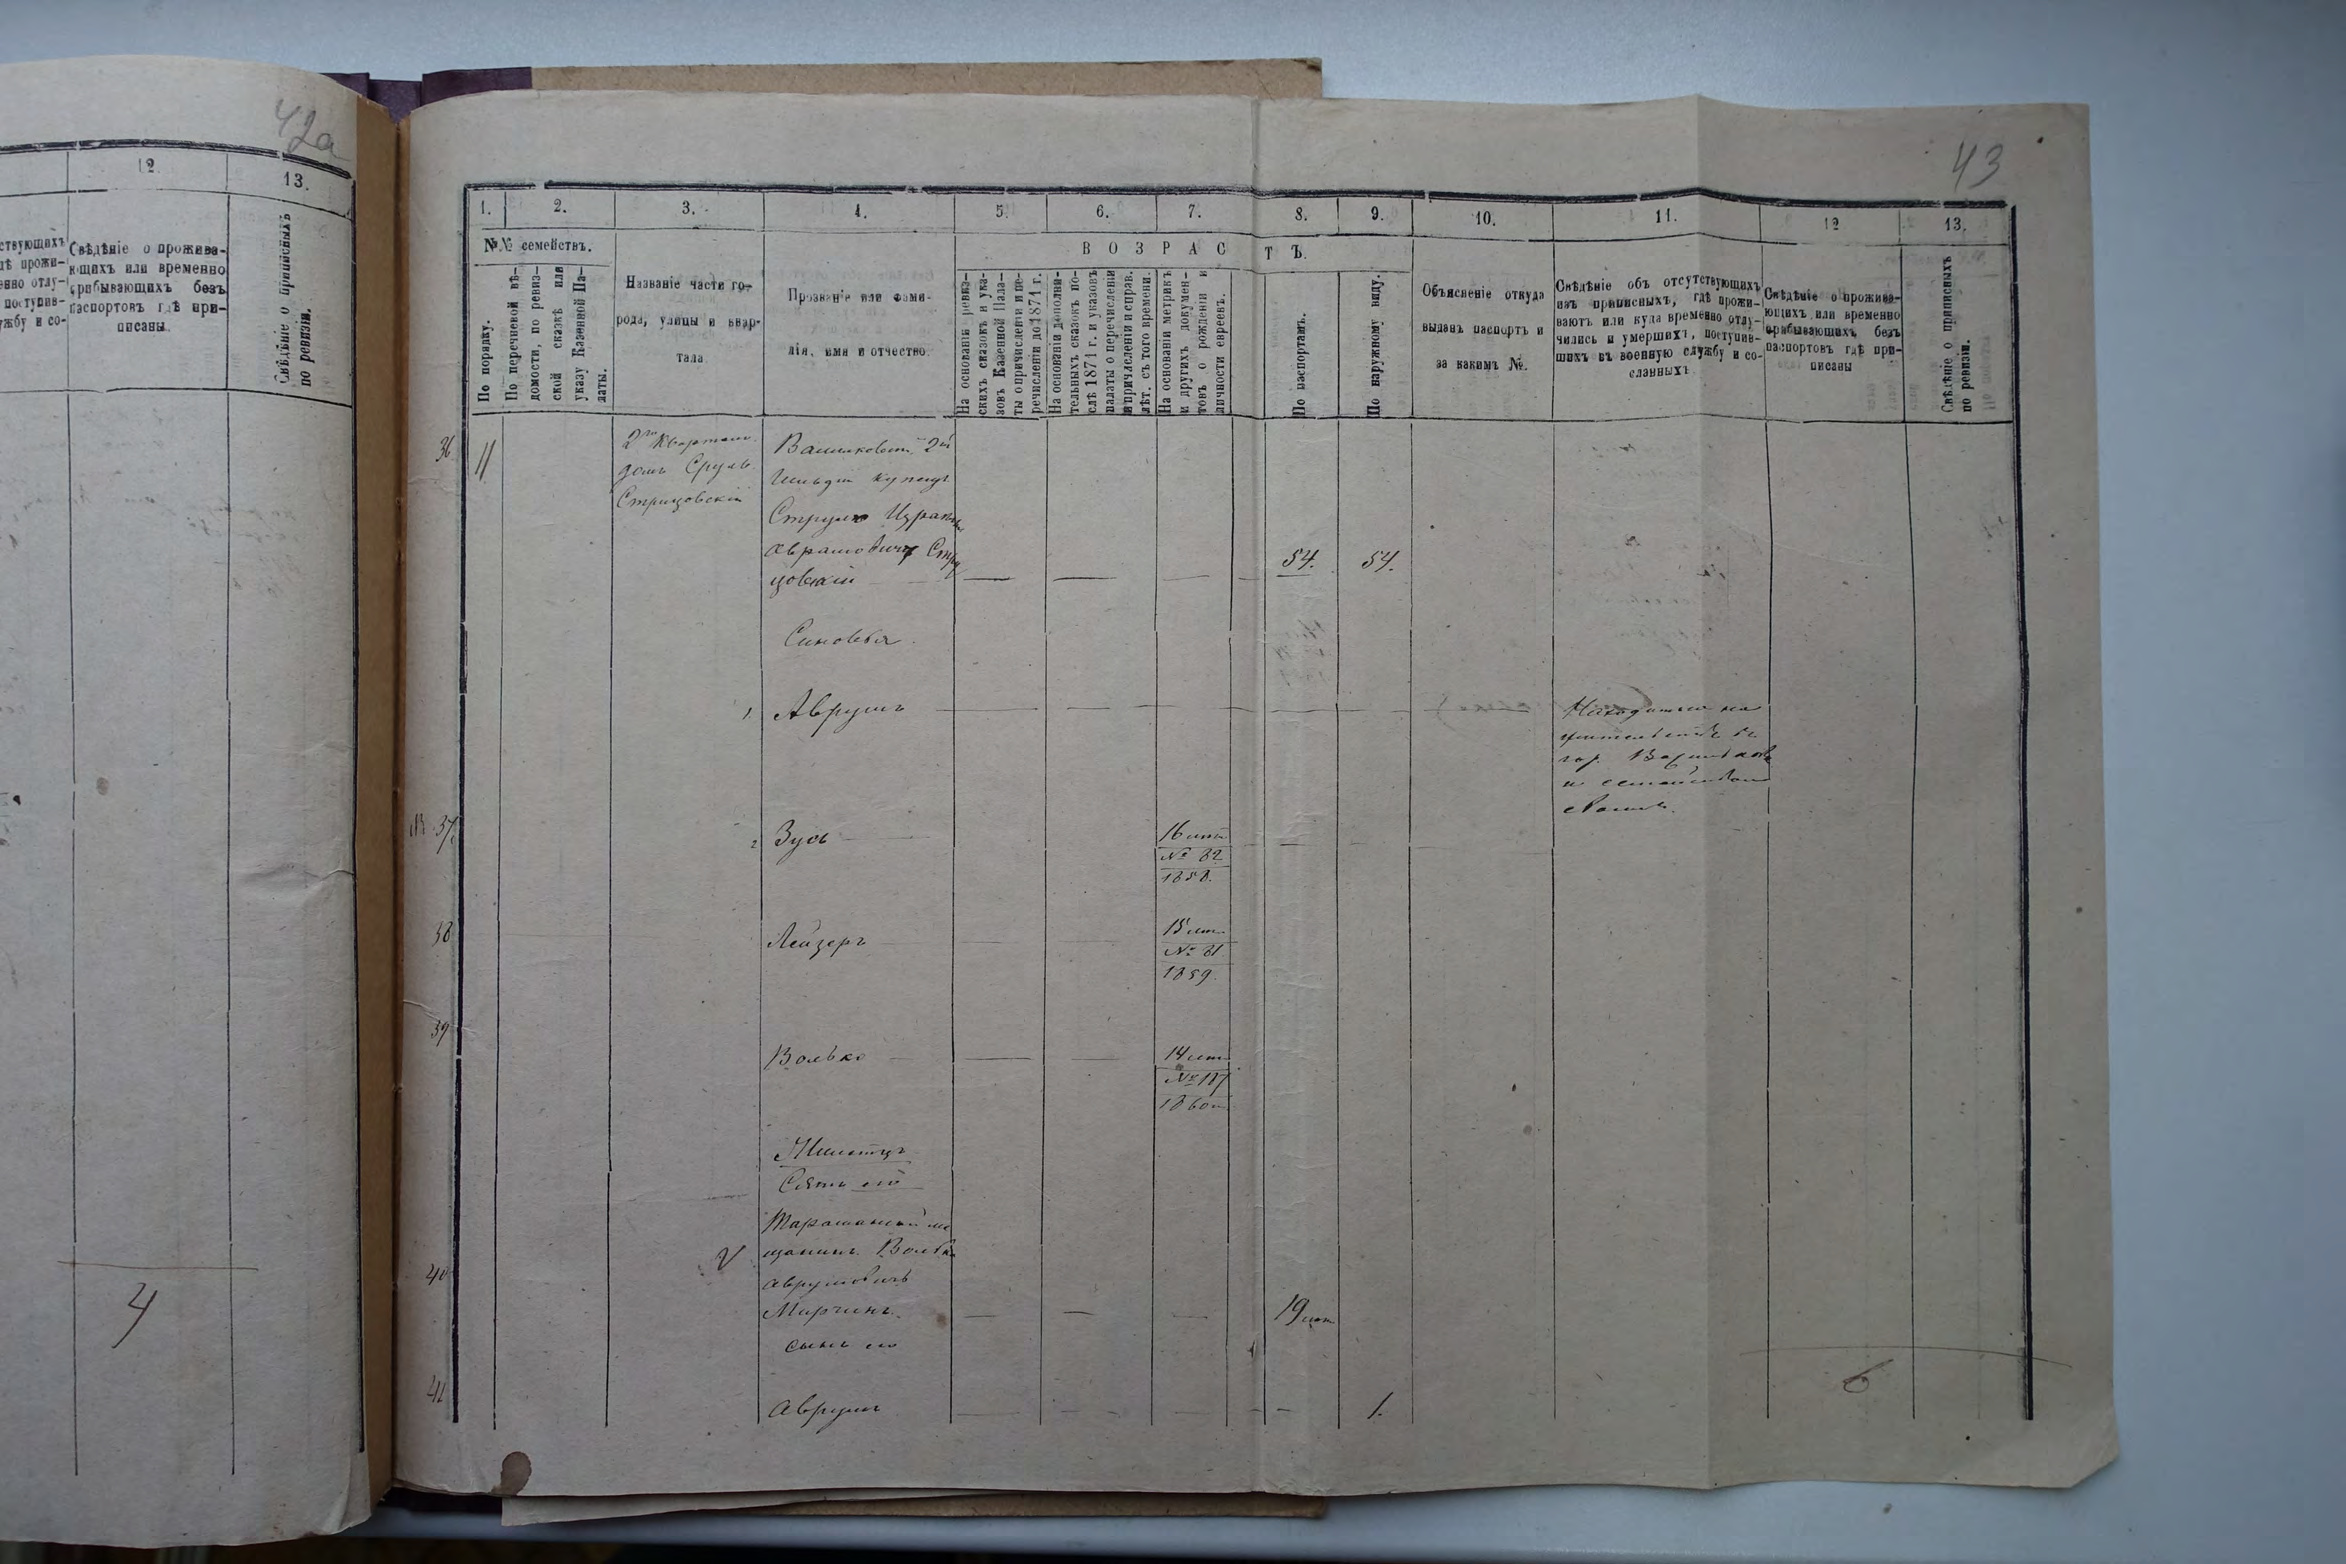 42а
12.
13.
Свѣдѣніе о прожива-
ющихъ или временно
прибывающихъ безъ
паспортовъ гдѣ при-
писаны.
Свѣдѣніе о приписныхъ
по ревизіи.
4
43
1. 2. 3. 4. 5. 6. 7. 8. 9. 10. 11. 12 13.
№№ семействъ.
В О З Р А С Т Ъ.
По порядку.
По перечневой вѣ-
домости, по ревиз-
ской сказкѣ или
указу Казенной Па-
латы.
Названіе части го-
рода, улицы и квар-
тала
Прозваніе или фами-
лія, имя и отчество.
На основаніи ревиз-
скихъ сказокъ и ука-
зовъ Казенной Пала-
ты о причисленіи и пе-
речисленіи до 1871 г.
На основаніи дополни-
тельныхъ сказокъ по-
слѣ 1871 г. и указовъ
палаты о перечисленіи
и причисленіи и справ.
лѣт. съ того времени.
На основаніи метрикъ
и другихъ докумен-
товъ о рожденіи и
личности евреевъ.
По паспортамъ.
По наружному виду.
Объясненіе откуда
выданъ паспортъ и
за какимъ №.
Свѣдѣніе объ отсутствующихъ
изъ приписныхъ, гдѣ прожи-
ваютъ или куда временно отлу-
чились и умершихъ, поступив-
шихъ въ военную службу и со-
сланныхъ
Свѣдѣніе о прожива-
ющихъ или временно
прибывающихъ безъ
паспортовъ гдѣ при-
писаны
Свѣдѣніе о приписныхъ
по ревизіи.
36 11
домъ Сруль
2й
гильдіи купецъ
54. 54.
Синовья.
1 Аврумъ
Находится на
жительствѣ въ
гор.
и семействомъ
37 2 Зусь 16 лѣтъ
№ 82
1858.
38 Лейзеръ 15 лѣт
№ 81
1859.
39 Волько 14 лѣт
№ 117
1860
Зять его
Таращанскій мѣ
щанинъ Волько
40 Аврумовичъ
19 лѣт
сынъ его
41 Аврумъ 1.
6